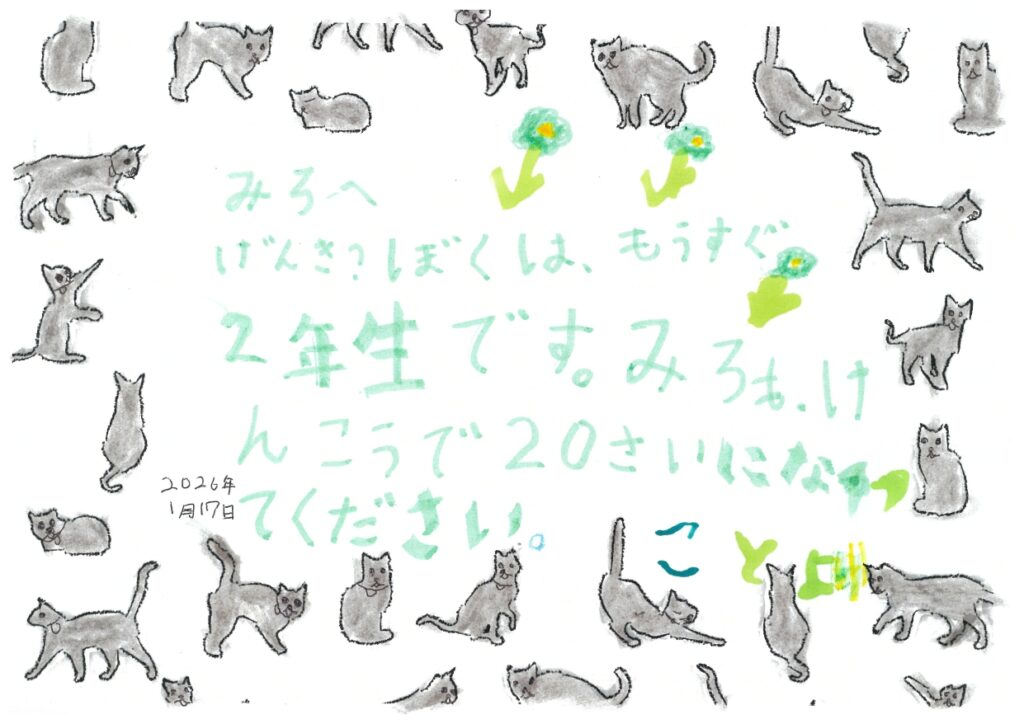 みろへ
げんき？ぼくは、もうすぐ
2年生です。みろも、け
んこうで20さいになっ
てください。
2026年
1月17日
こと